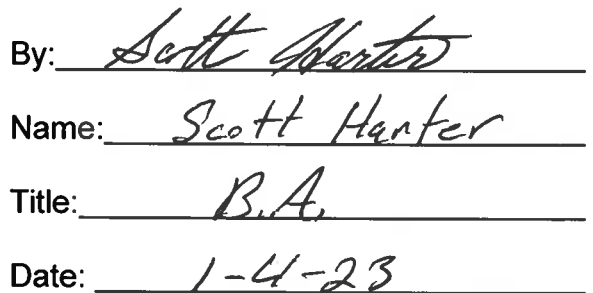 By: Scott Harter
Name: Scott Harter
Title: B.A.
Date: 1-4-23